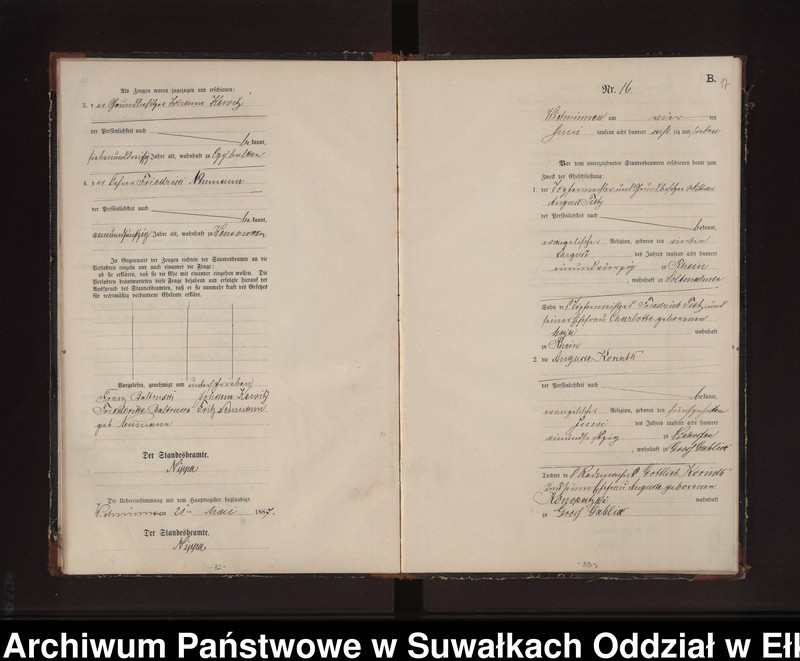 Als Zeugen waren zugezogen und erschienen:
3. der Grundbesitzer Johann Kewitz
der Persönlichkeit nach
bekannt,
Jahre alt, wohnhaft in
4. der Lehrer Friedrich Neumann
der Persönlichkeit nach
bekannt,
Jahre alt, wohnhaft in
In Gegenwart der Zeugen richtete der Standesbeamte an die
Verlobten einzeln und nach einander die Frage:
ob sie erklären, daß sie die Ehe mit einander eingehen wollen. Die
Verlobten beantworteten diese Frage bejahend und erfolgte hierauf der
Ausspruch des Standesbeamten, daß er sie nunmehr kraft des Gesetzes
für rechtmäßig verbundene Eheleute erkläre.
Vorgelesen, genehmigt und unterschrieben
Franz Johann Kewitz
Friederike Fritz Neumann
geb. Neumann
Der Standesbeamte.
Nippa
Die Uebereinstimmung mit dem Hauptregister beglaubigt.
Widminnen am 21ten Mai 1887.
Der Standesbeamte.
Nippa
-32-
B.
17
Nr. 16
Widminnen am vier ten
Juni tausend acht hundert acht zig und sieben
Vor dem unterzeichneten Standesbeamten erschienen heute zum
Zweck der Eheschließung:
1. der Töpfermeister und Grundbesitzer
August
der Persönlichkeit nach
bekannt,
evangelischer Religion, geboren den vierten
August des Jahres tausend acht hundert
einundvierzig zu Rhein
, wohnhaft in
Sohn des Töpfermeisters Friedrich und
seiner Ehefrau Charlotte geborenen
wohnhaft
zu Rhein
2. die Auguste
der Persönlichkeit nach
bekannt,
evangelischer Religion, geboren den fünfzehnten
Juni des Jahres tausend acht hundert
einundsechzig zu
, wohnhaft in Gross Gablick
Tochter des Rademachers Gottlieb
und seiner Ehefrau Auguste geborenen
Konopatzki wohnhaft
zu Gross Gablick
-33-
Archiwum Państwowe w Suwałkach Oddział w Ełk